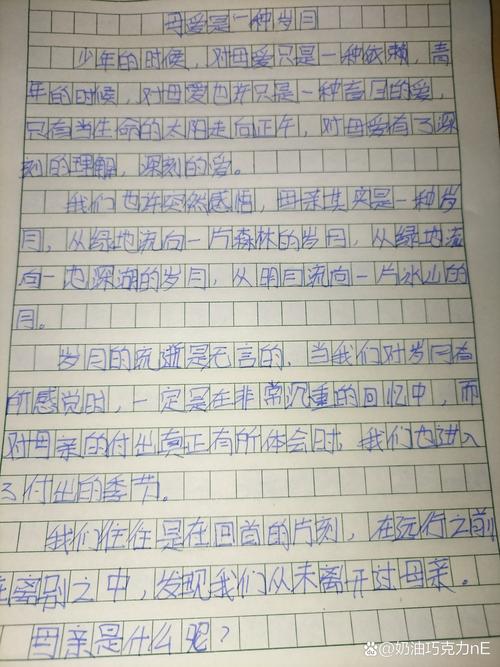 母爱是一种岁月
少年的时候，对母爱只是一种依赖，青
年的时候，对母爱也许只是一种盲目的爱，
只有当生命的太阳走向正午，对母爱有了深
刻的理解，深刻的爱。
我们也许突然感悟，母亲其实是一种岁
月，从绿地流向一片森林的岁月，从绿地流
向一地深湖的岁月，从明月流向一片冰山的
月。
岁月的流逝是无言的，当我们对岁月有
所感觉时，一定是在非常沉重的回忆中，而
对母亲的付出真正有所体会时，我们也进入
了付出的季节。
我们往往是在回首的片刻，在远行之前
在离别之中，发现我们从未离开过母亲。
母亲是什么呢？
@奶油巧克力nE